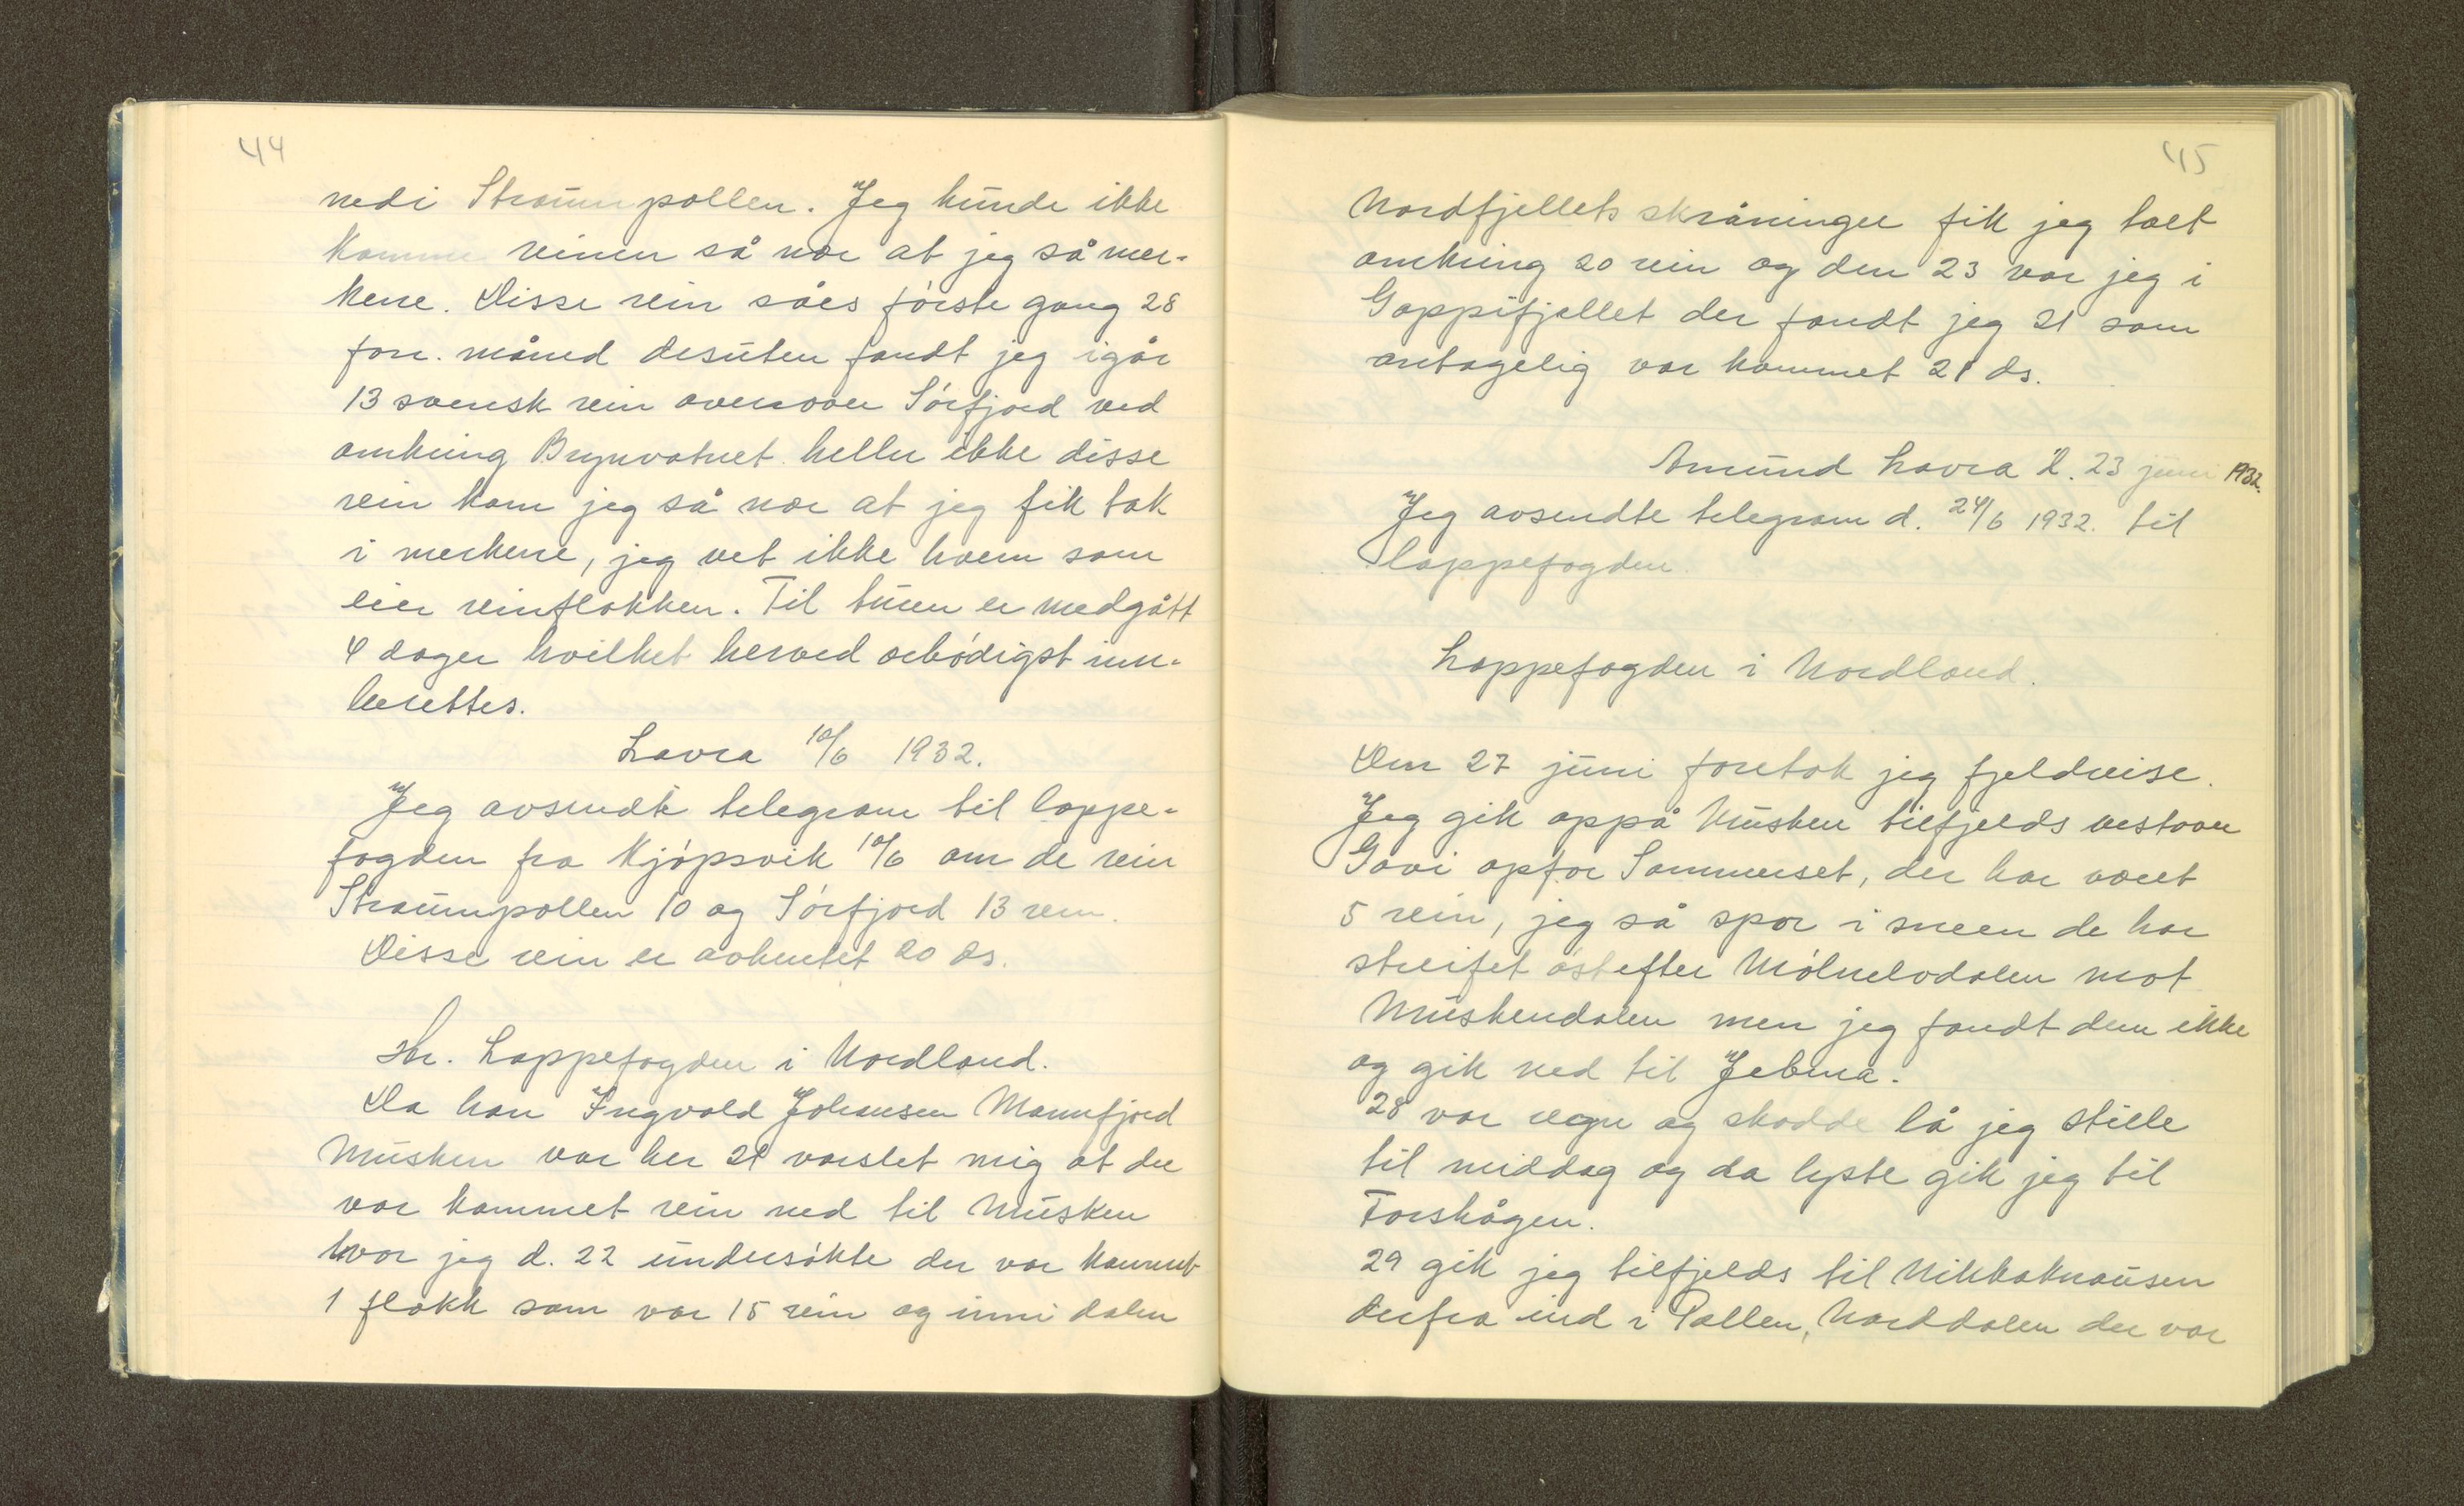 44
nedi Straumpollen. Jeg kunde ikke
komme reinen så nær at jeg så mer-
kene. Disse rein såes første gang 28
forr. måned desuten fandt jeg igår
13 svensk rein ovenover Sörfjord ved
omkring Brynvatnet heller ikke disse
rein kom jeg så nær at jeg fik tak
i merkene, jeg vet ikke hvem som
eier reinflokken. Til turen er medgått
4 dager hvilket herved ærbødigst inn-
berettes.
Lavra 10/6 1932.
Jeg avsendte telegram til lappe-
fogden fra Kjöpsvik 10/6 om de rein
Straumpollen 10 og Sörfjord 13 rein.
Disse rein er avhentet 20 ds.
Hr. Lappefogden i Nordland.
Da han Ingvald Johansen Mannfjord
Musken var her 21 varslet mig at der
var kommet rein ned til Musken
hvor jeg d. 22 undersökte der var kommet
1 flokk som var 15 rein og inni dalen
45
Nordfjellets skråninger fik jeg talt
omkring 20 rein og den 23 var jeg i
Goppifjellet der fandt jeg 21 som
antagelig var kommet 21 ds.
Amund Lavra d. 23 juni 1932.
Jeg avsendte telegram d. 24/6 1932. til
lappefogden.
Lappefogden i Nordland.
Den 27 juni foretok jeg fjeldreise.
Jeg gik oppå Musken tilfjelds vestover
Govi opfor Sommerset, der har været
5 rein, jeg så spor i sneen de har
streifet östefter Mölnelvdalen mot
Muskendalen men jeg fandt dem ikke
og gik ned til Jebma.
28 var regn og skodde lå jeg stille
til middag og da lyste gik jeg til
Forshågen.
29 gik jeg tilfjelds til Nikkaknausen
derfra ind i Pollen, Norddalen der var